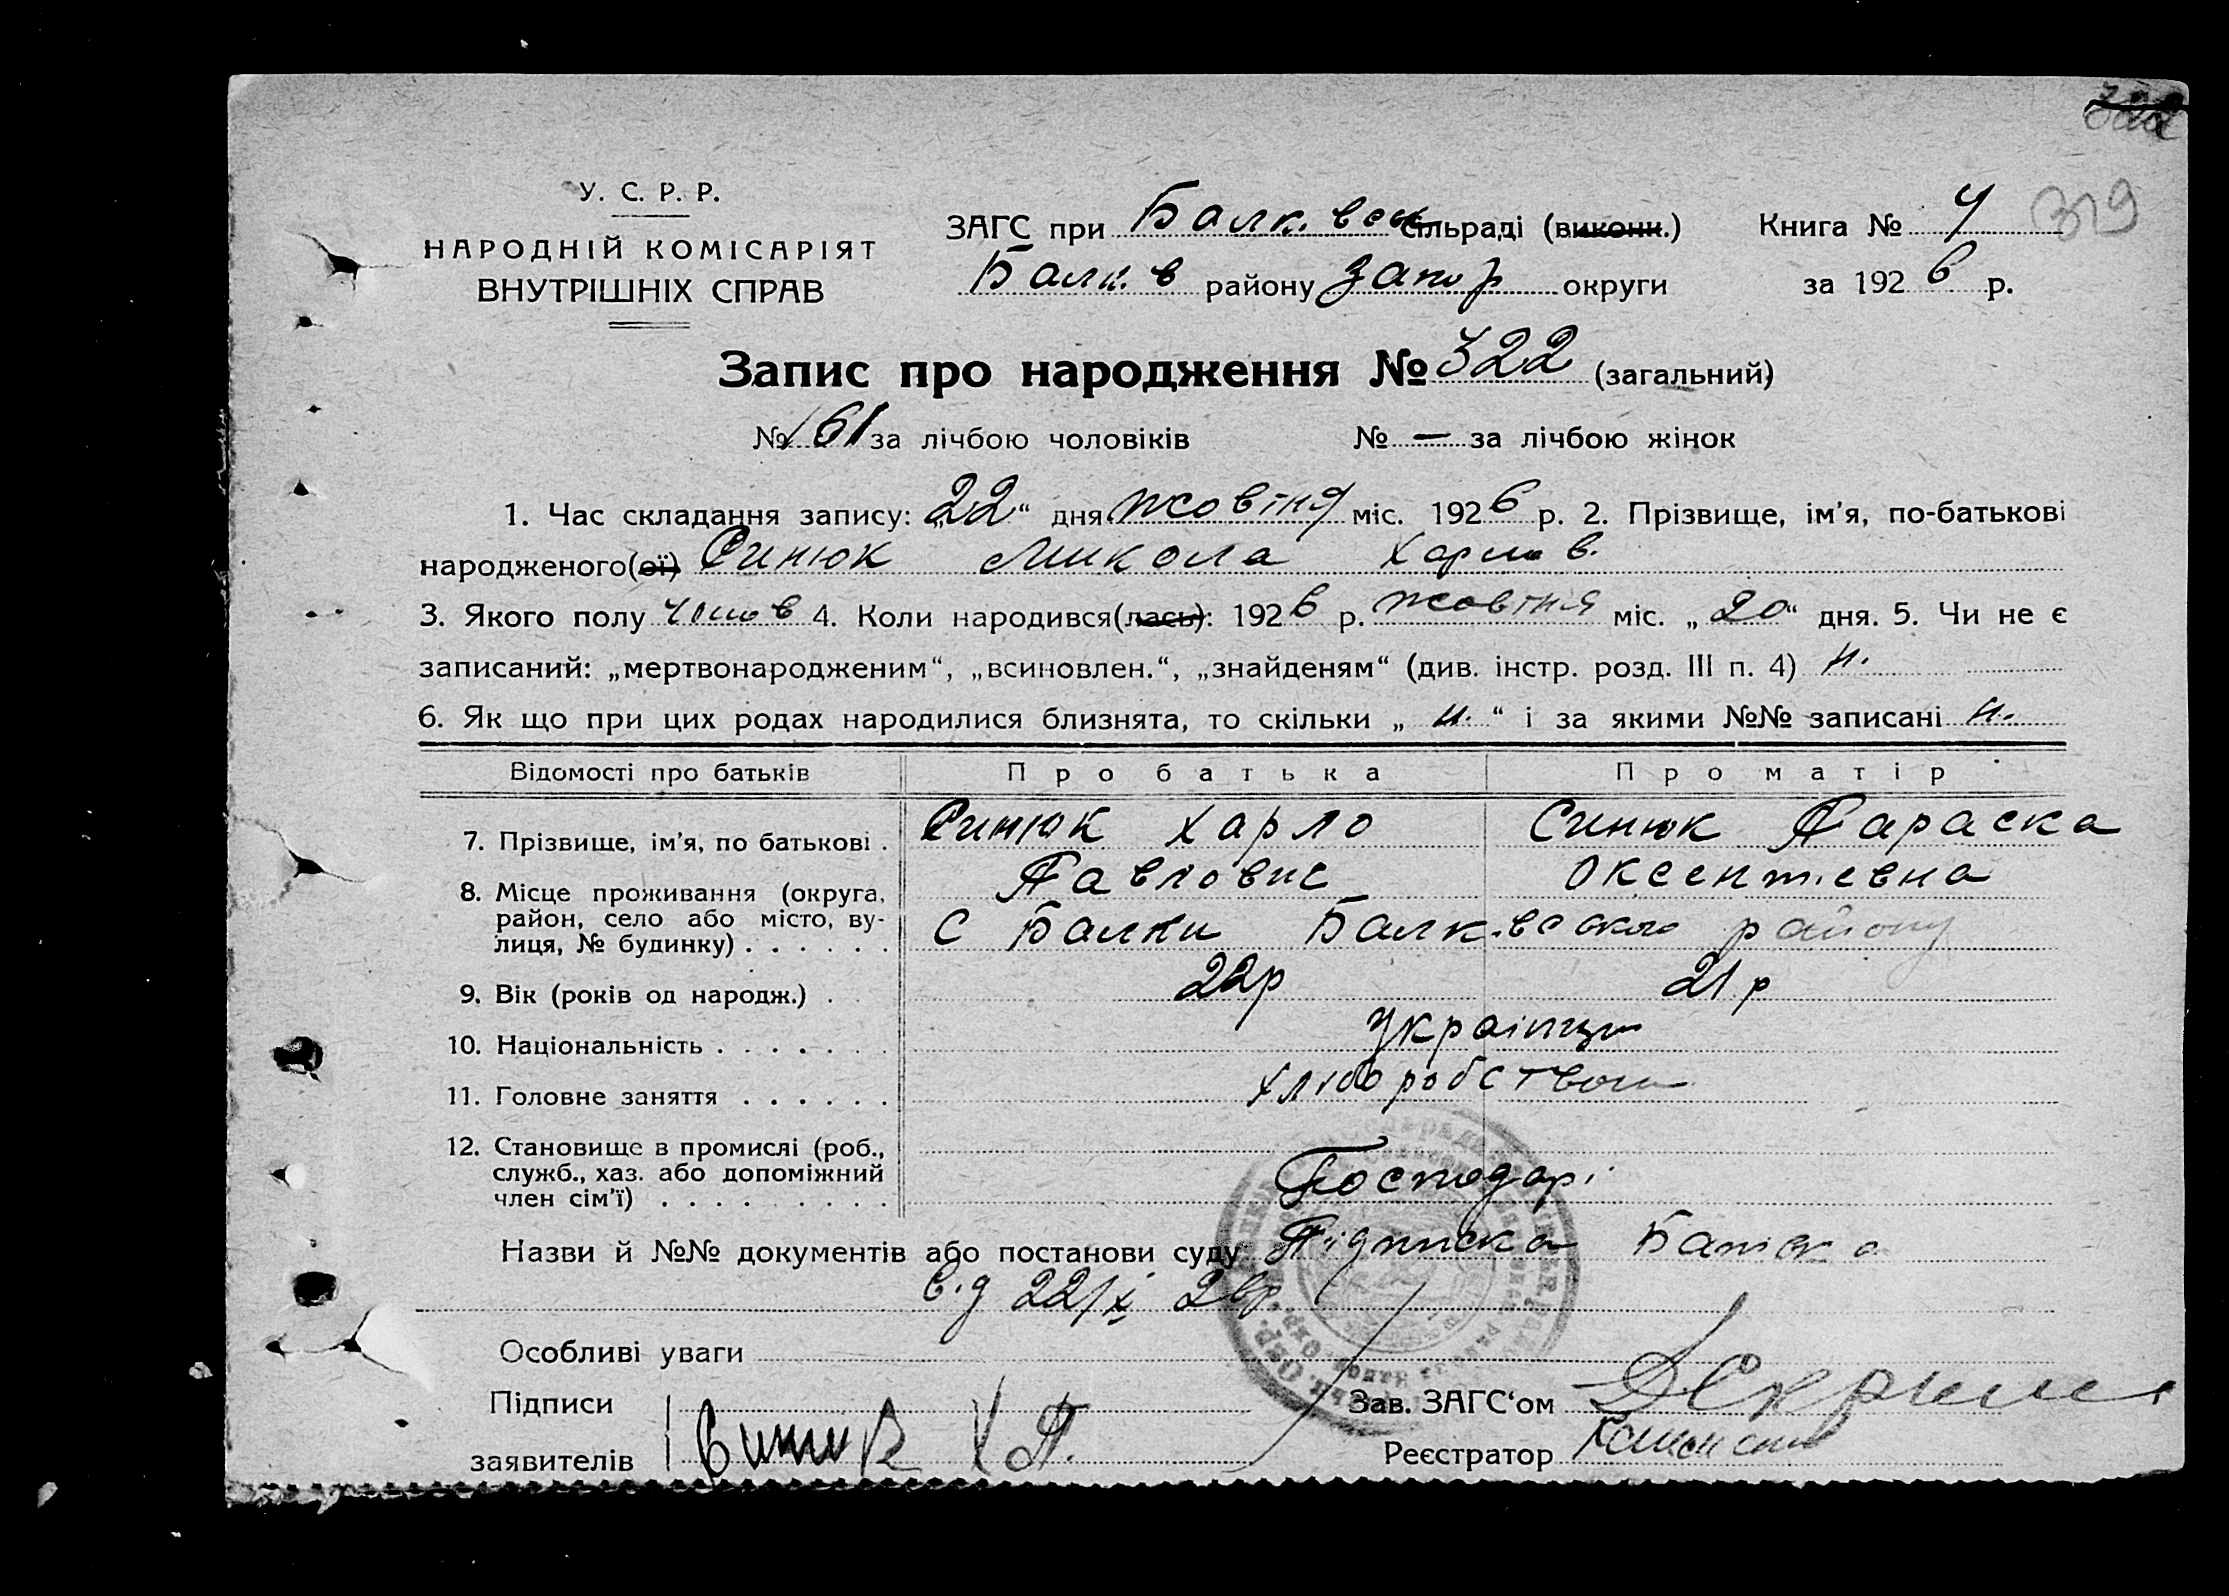 322
У. С. Р. Р.
НАРОДНІЙ КОМІСАРІЯТ
ВНУТРІШНІХ СПРАВ
ЗАГС при Балк.вській сільраді (виконк.) Книга № 4 319
Балк. в району Запор округи за 1926 р.
Запис про народження № 322 (загальний)
№ 161 за лічбою чоловіків № — за лічбою жінок
1. Час складання запису: „22“ дня жовтня міс. 1926 р. 2. Прізвище, ім'я, по-батькові
народженого(ої) Синюк Микола Харлов.
3. Якого полу чолов 4. Коли народився(лась): 1926 р. жовтня міс. „20“ дня. 5. Чи не є
записаний: „мертвонародженим“, „всиновлен.“, „знайденям“ (див. інстр. розд. III п. 4) н.
6. Як що при цих родах народилися близнята, то скільки „ н. “ і за якими №№ записані н.
Відомості про батьків Про батька Про матір
7. Прізвище, ім'я, по батькові . Синюк Харло Синюк Параска
Павлович Оксентіевна
8. Місце проживання (округа,
район, село або місто, ву-
лиця, № будинку) . . . . . . с Балки Балк.вського району
9. Вік (років од народж.) . 22р 21 р
10. Національність . . . . . . . Українці
11. Головне заняття . . . . . . хліборобством
12. Становище в промислі (роб.,
служб., хаз. або допоміжний
член сім'ї) . . . . . . . . . Господарі
Назви й №№ документів або постанови суду Підписка Батька
від 22/X 26р
Особливі уваги
Підписи
заявителів Синюк Х П.
Зав. ЗАГС'ом
Реєстратор